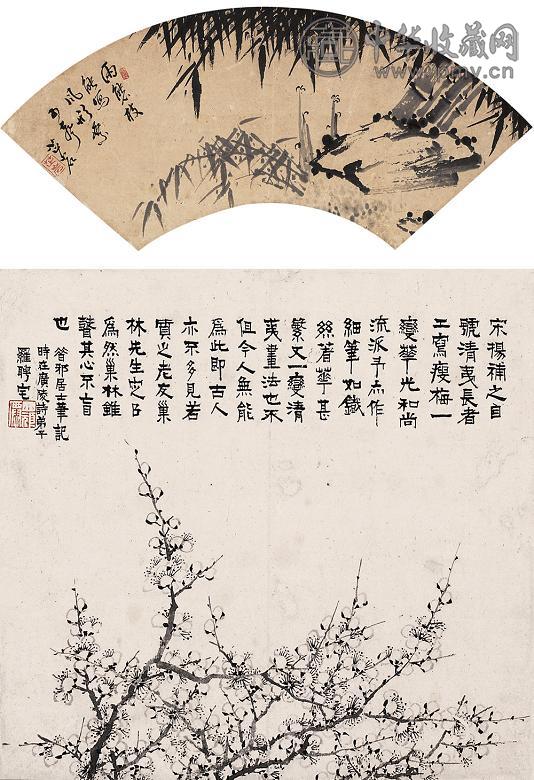 中华收藏网
雨
枝
能寫
風
宋楊補之自
號清夷長者
工寫瘦梅一
變華光和尚
流派予亦作
細筆如鐵
絲著華甚
繁又一變清
夷畫法也不
但今人無能
爲此即古人
亦不多見若
質之老友巢
林先生
爲然巢林雖
瞽其心不盲
也 昔邪居士筆記
時在廣陵詩弟子
羅聘